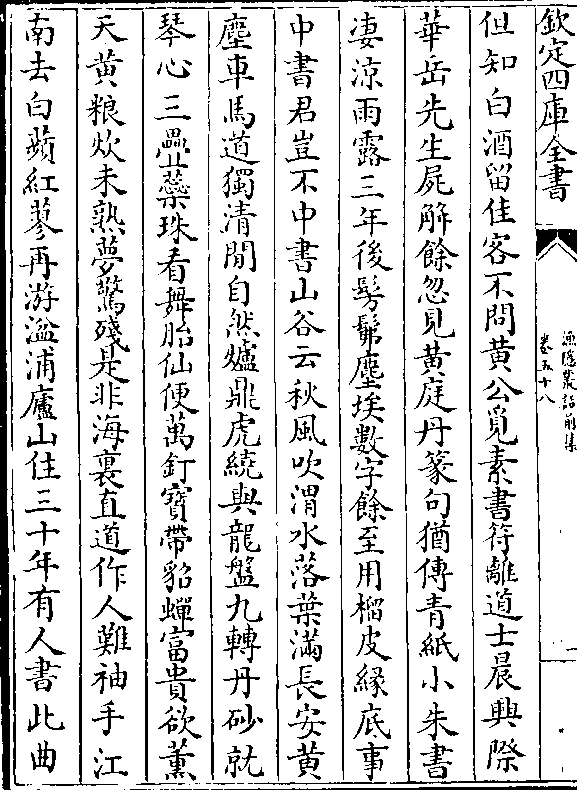 欽定四庫全書
漁隱叢話前集
卷五十八
但知白酒留佳客不問黄公覓素書符離道士晨興際
華岳先生屍解餘忽見黄庭丹篆句猶傳青紙小朱書
凄涼雨露三年後髣髴塵埃數字餘至用榴皮緣底事
中書君豈不中書山谷云秋風吹渭水落葉滿長安黄
塵車馬道獨清閒自然爐鼎虎繞與龍盤九轉丹砂就
琴心三疊蘂珠看舞胎仙便萬釘寶帶貂蟬富貴欲薰
天黄粮炊未熟夢驚殘是非海裏直道作人難袖手江
南去白蘋紅蓼再游湓浦廬山住三十年有人書此曲